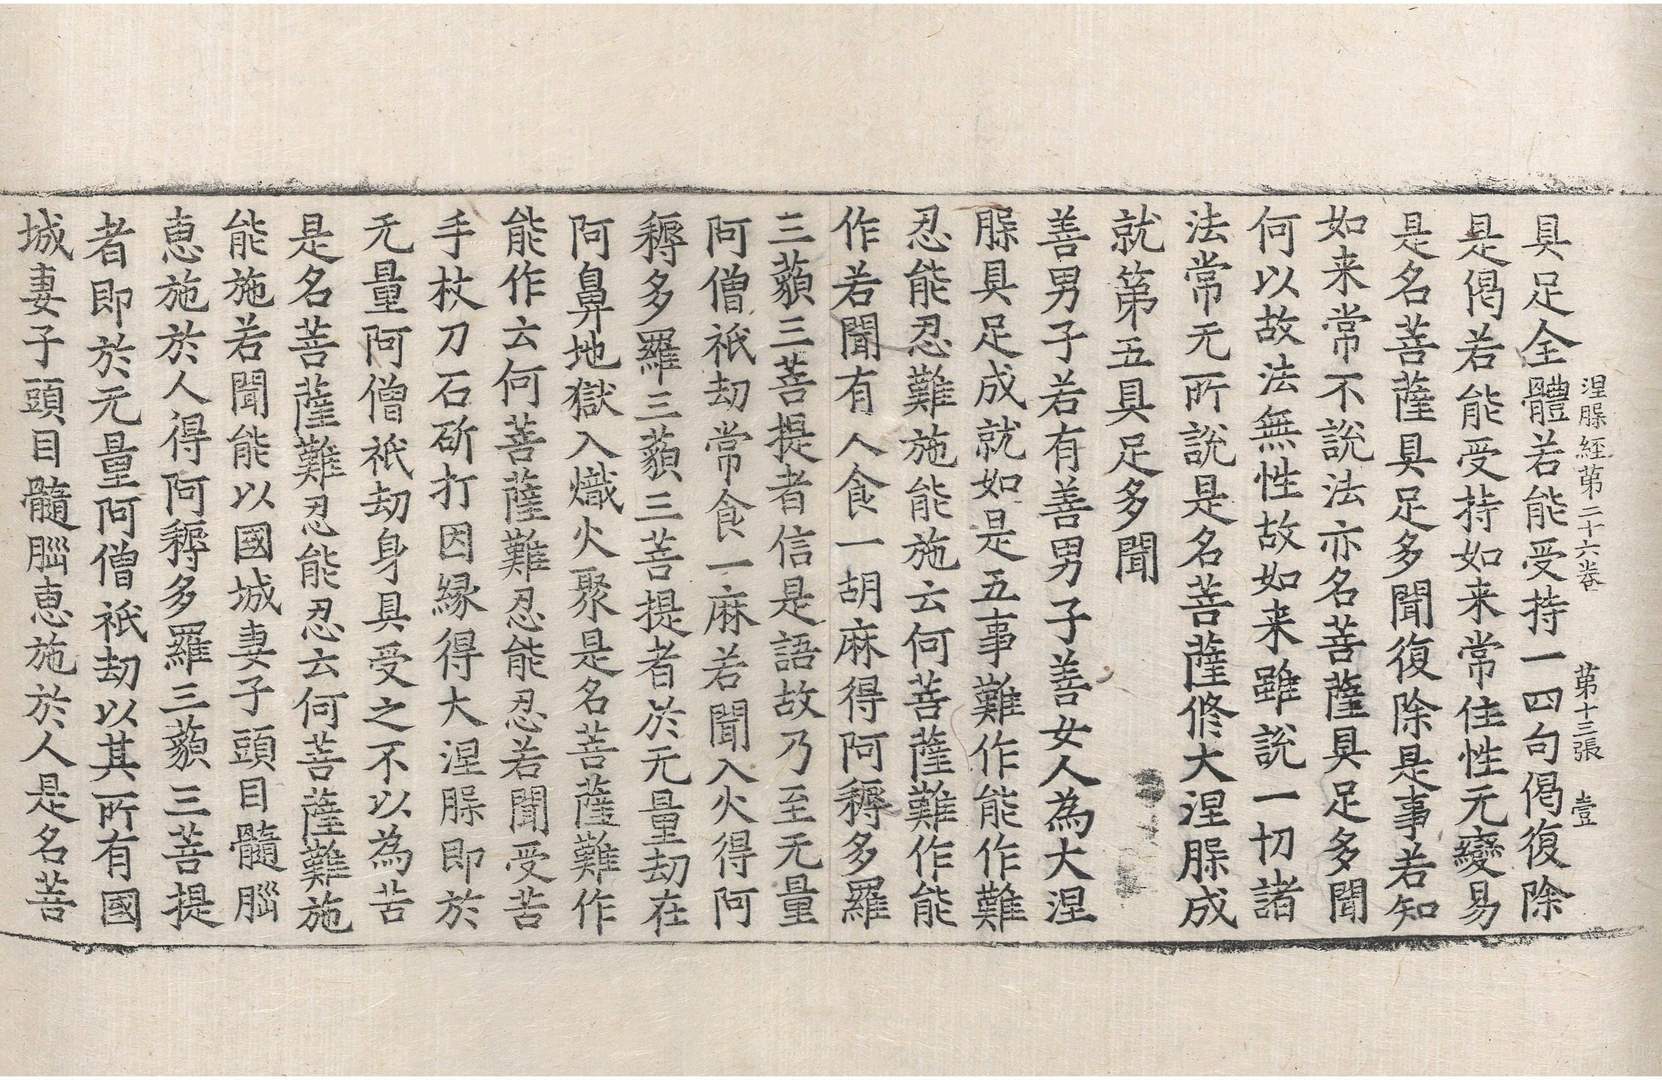 涅槃経第二十六卷　第十三張　壹
具足全體若能受持一四句偈復除
是偈若能受持如来常住性无變易
是名菩薩具足多聞復除是事若知
如来常不說法亦名菩薩具足多聞
何以故法無性故如来雖說一切諸
法常无所說是名菩薩修大涅槃成
就第五具足多聞
善男子若有善男子善女人為大涅
槃具足成就如是五事難作能作難
忍能忍難施能施云何菩薩難作能
作若聞有人食一胡麻得阿耨多羅
三藐三菩提者信是語故乃至无量
阿僧祇劫常食一麻若聞入火得阿
耨多羅三藐三菩提者於无量劫在
阿鼻地獄入熾火聚是名菩薩難作
能作云何菩薩難忍能忍若聞受苦
手杖刀石斫打因縁得大涅槃即於
无量阿僧祇劫身具受之不以為苦
是名菩薩難忍能忍云何菩薩難施
能施若聞能以國城妻子頭目髓腦
恵施於人得阿耨多羅三藐三菩提
者即於无量阿僧祇劫以其所有國
城妻子頭目髓腦恵施於人是名菩